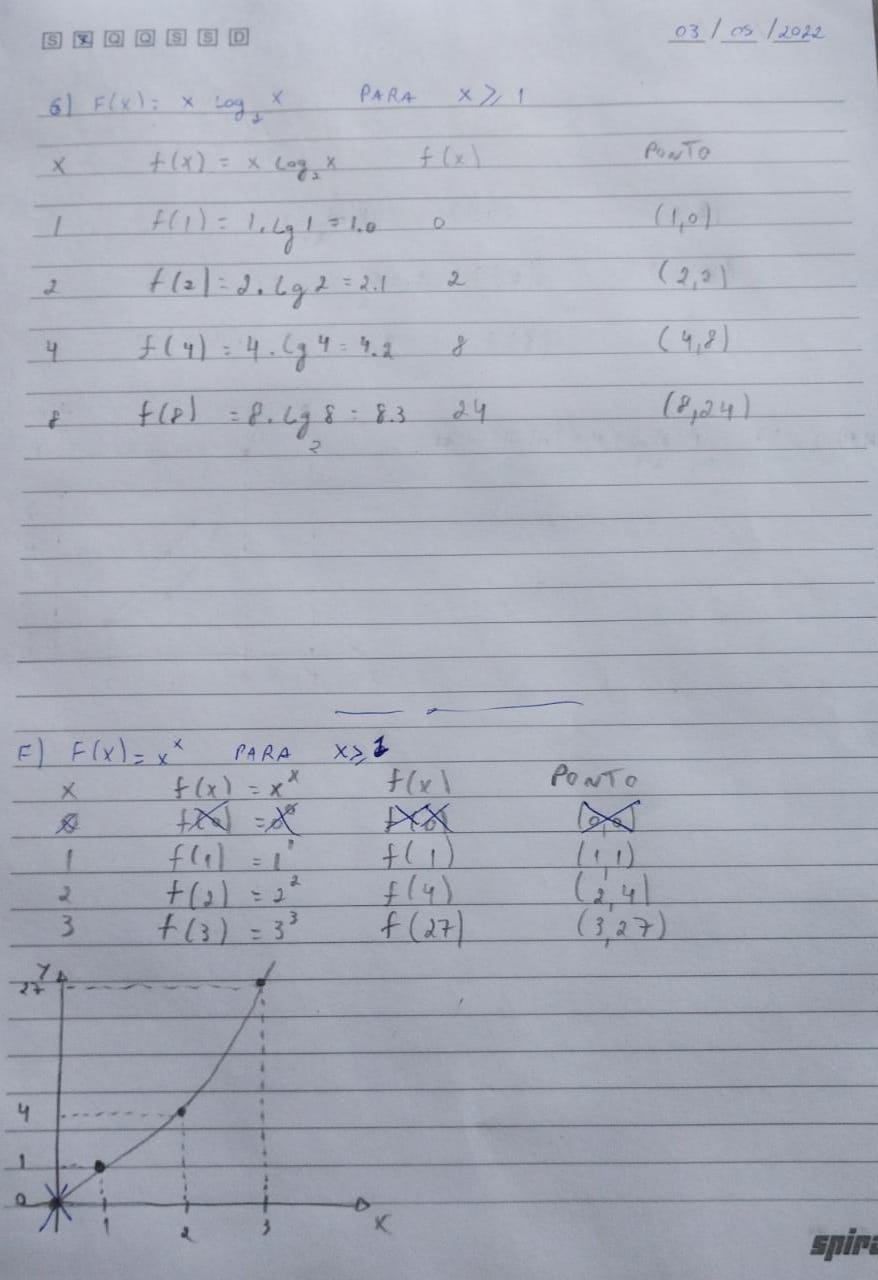 S X Q Q S S D 03/05/2022
6) F(x) = x log₂ x PARA x ≥ 1
x f(x) = x log₂ x f(x) PONTO
1 f(1) = 1.lg 1 = 1.0 0 (1,0)
2 f(2) = 2.lg 2 = 2.1 2 (2,2)
4 f(4) = 4.lg 4 = 4.2 8 (4,8)
8 f(8) = 8.lg₂ 8 = 8.3 24 (8,24)
F) F(x) = xˣ PARA x ≥ 1
x f(x) = xˣ f(x) PONTO
1 f(1) = 1¹ f(1) (1,1)
2 f(2) = 2² f(4) (2,4)
3 f(3) = 3³ f(27) (3,27)
Y
27
4
1
0
1 2 3 X
spira